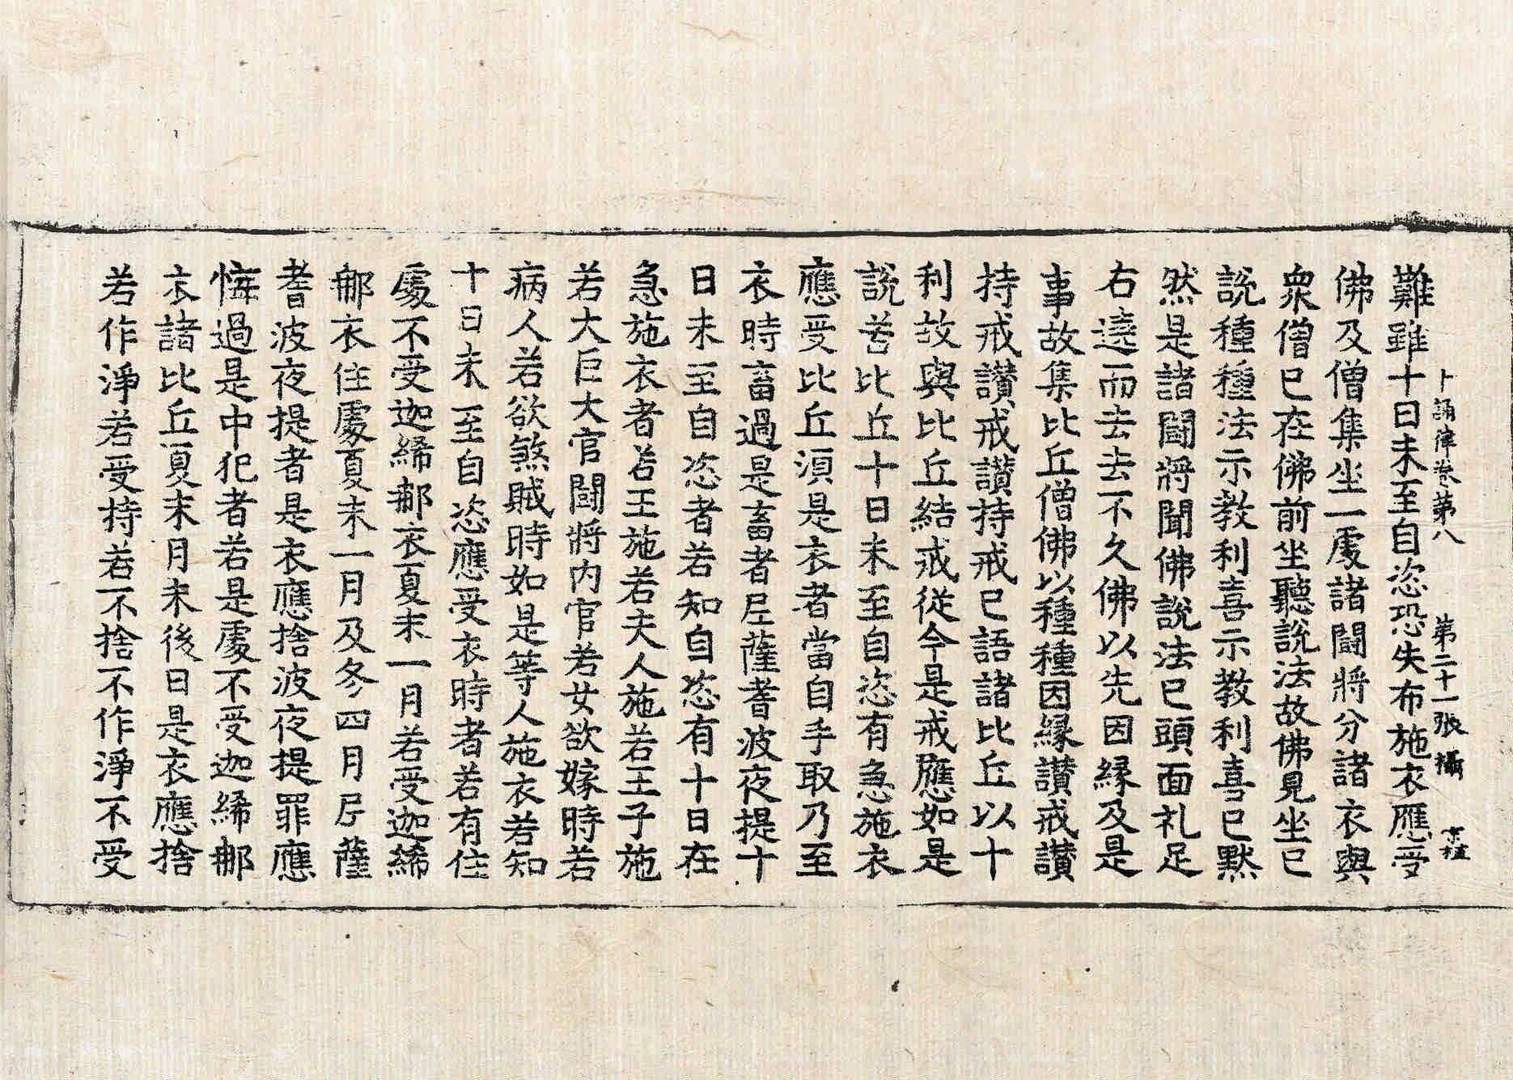 十誦律卷第八 第二十一張 攝
難雖十日未至自恣恐失布施衣應受
佛及僧集坐一處諸鬪將分諸衣與
衆僧已在佛前坐聽說法故佛見坐已
說種種法示教利喜示教利喜已默
然是諸鬪將聞佛說法已頭面礼足
右遶而去去不久佛以先因緣及是
事故集比丘僧佛以種種因緣讃戒讃
持戒讃戒讃持戒已語諸比丘以十
利故與比丘結戒從今是戒應如是
說若比丘十日未至自恣有急施衣
應受比丘湏是衣者當自手取乃至
衣時畜過是畜者尼薩耆波夜提十
日未至自恣者若知自恣有十日在
急施衣者若王施若夫人施若王子施
若大臣大官鬪將内官若女欲嫁時若
病人若欲煞賊時如是等人施衣若知
十日未至自恣應受衣時者若有住
處不受迦絺那衣夏末一月若受迦絺
那衣住處夏末一月及冬四月尼薩
耆波夜提者是衣應捨波夜提罪應
悔過是中犯者若是處不受迦絺那
衣諸比丘夏末月末後日是衣應捨
若作淨若受持若不捨不作淨不受